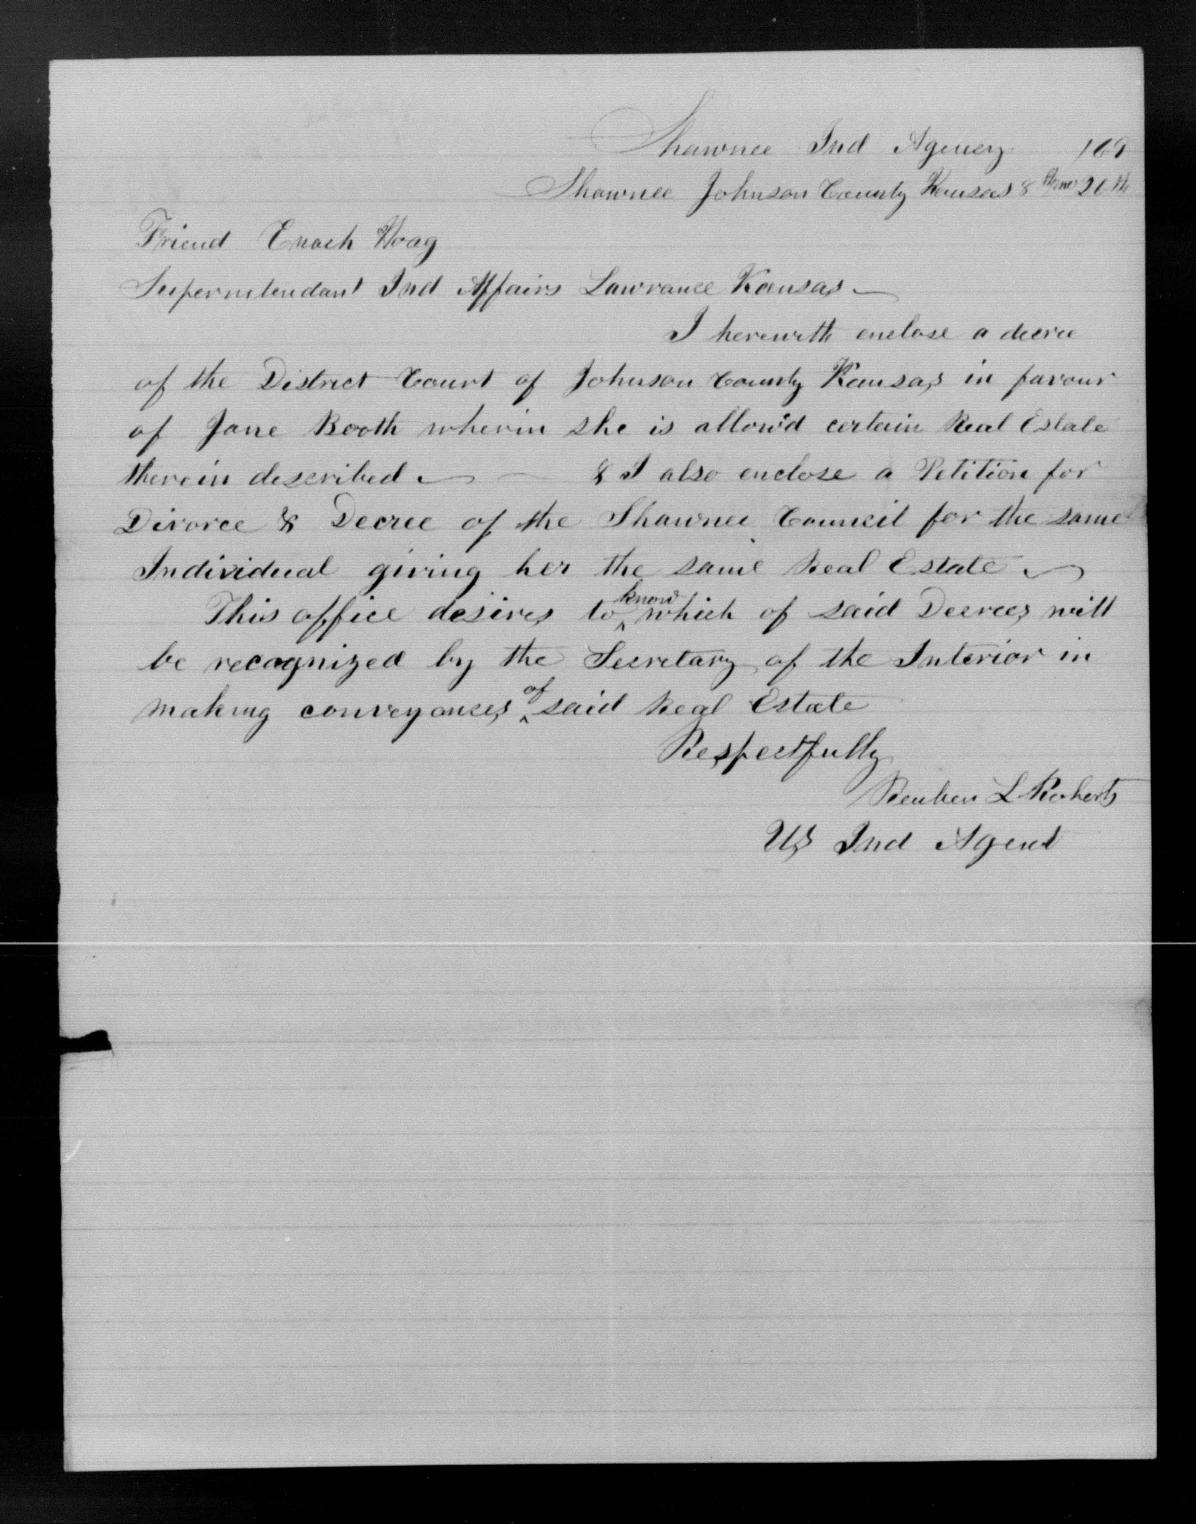 Shawnee Ind Agency 169
Shawnee Johnson County Kansas 8th mo 20th
Friend Enoch Hoag
Supernitendant Ind Affairs Lawrance Kansas
I herewith enclose a decree
of the District Court of Johnson County Kansas in favour
of Jane Booth wherein she is allow'd certain Real Estate
therein described & I also enclose a Petition for
Divorce & Decree of the Shawnee Council for the same
Individual giving her the same Real Estate
This office desires to know which of said Decrees will
be recognized by the Secretary of the Interior in
making conveyances of said Real Estate
Respectfully
Reuben L Roberts
US Ind Agent